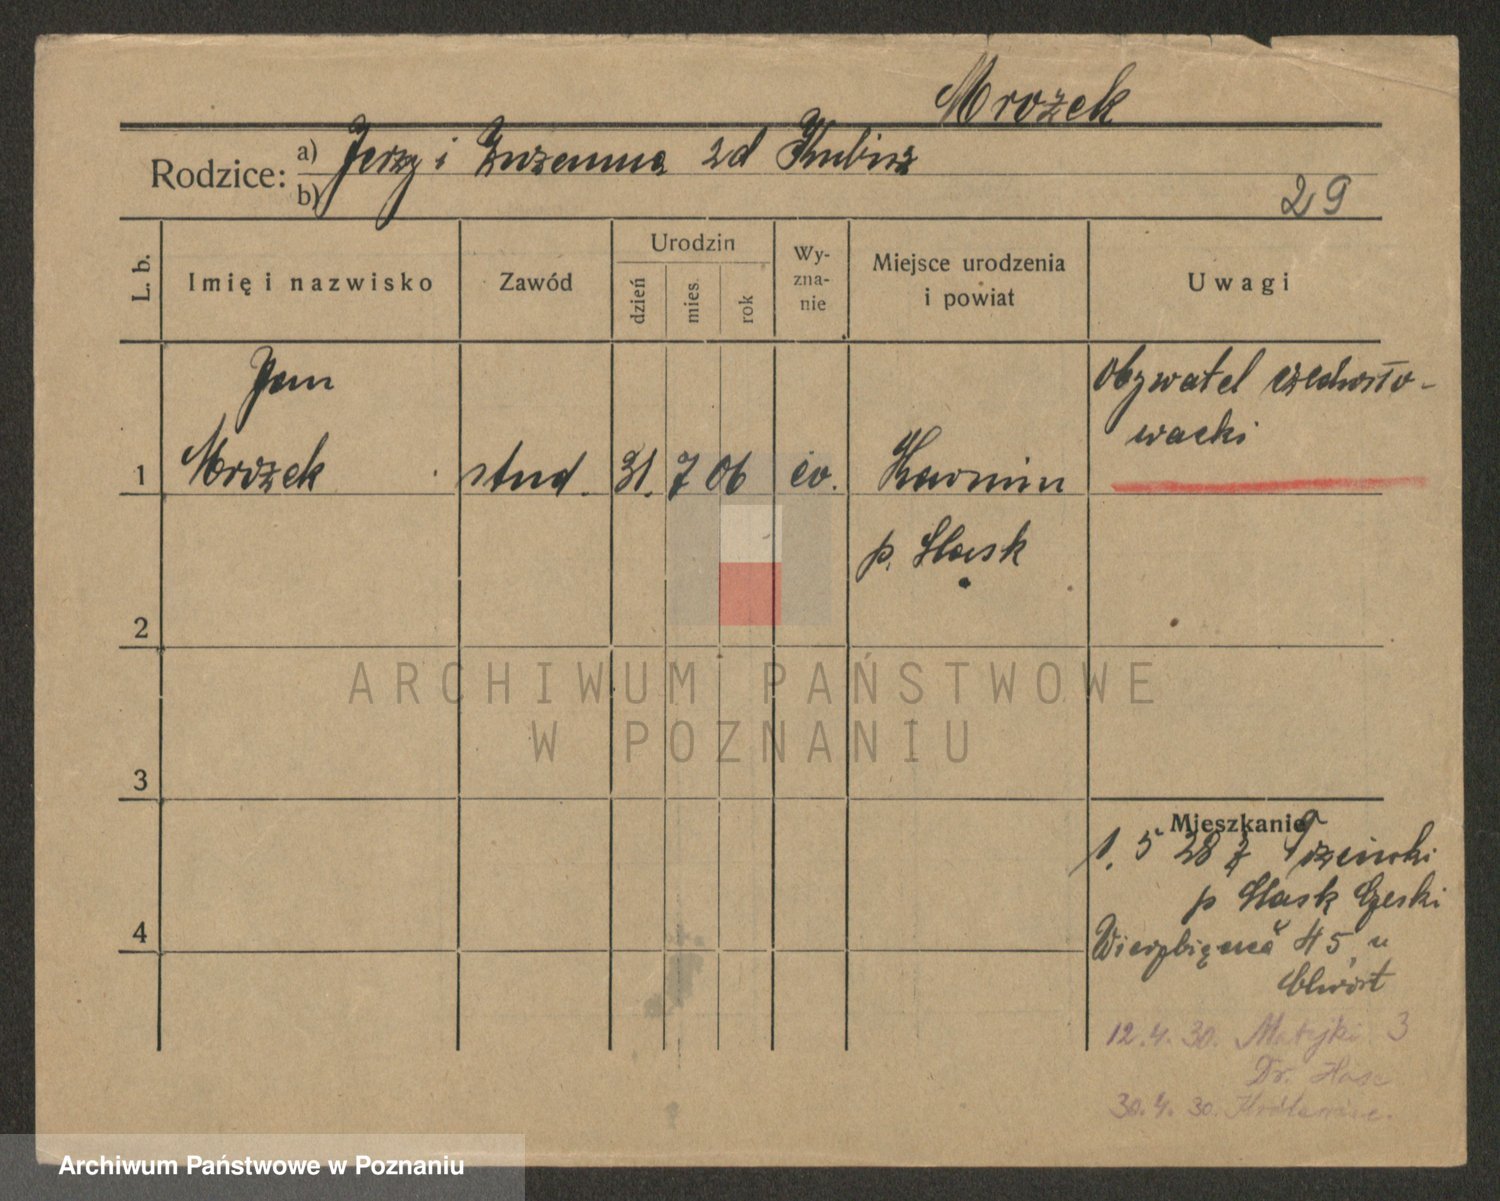 Mrozek
Rodzice: a) Jerzy i Zuzanna zd Kubisz
b)
29
L. b.
Imię i nazwisko
Zawód
Urodzin
dzień
mies.
rok
Wy-
zna-
nie
Miejsce urodzenia
i powiat
Uwagi
Jan
Obywatel czechosło-
wacki
1 Mrozek stud. 31. 7 06 ev. Karwin
p. Śląsk
2
ARCHIWUM PAŃSTWOWE
W POZNANIU
3
Mieszkanie
1. 5 28 z
p Śląsk Czeski
4
45, u
12. 4. 30. Matejki 3
Dr.
30. 4. 30.
Archiwum Państwowe w Poznaniu